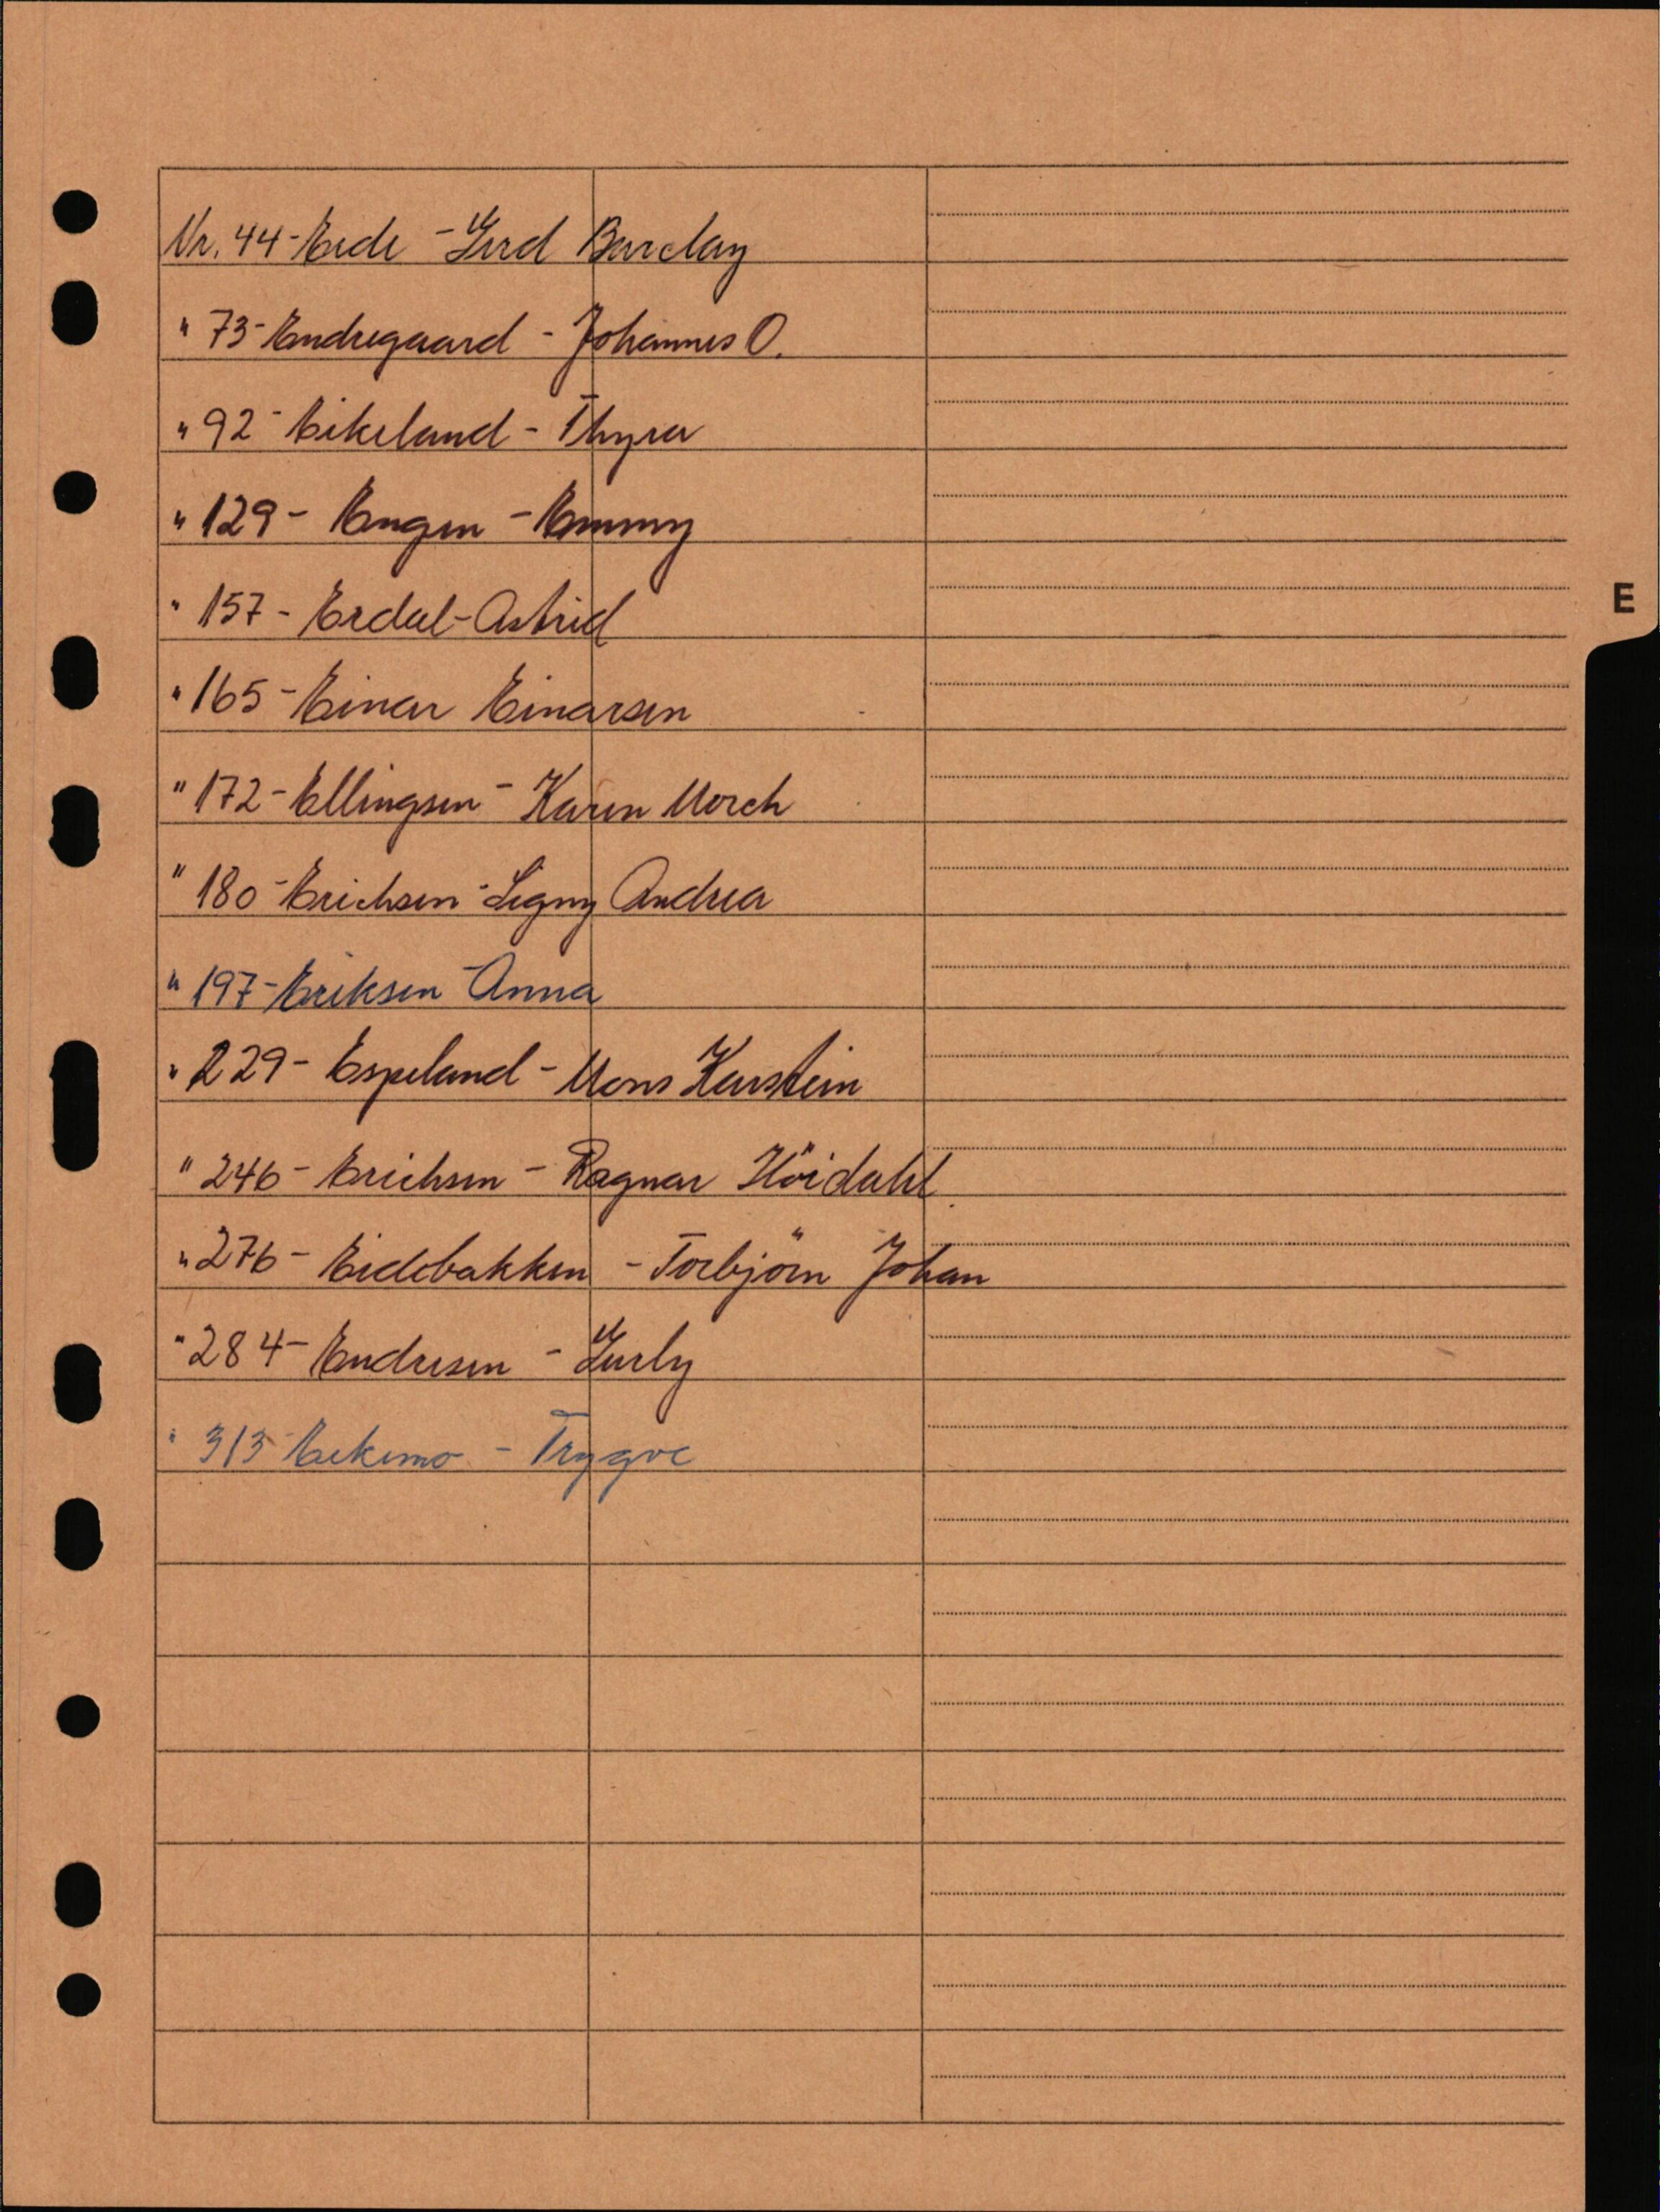 Nr. 44 - Eide - Gerd Barclay
" 73 - Endregaard - Johannes O.
" 92 - Eikeland - Thyra
" 129 - Engen - Emmy
" 157 - Erdal - Astrid
E
" 165 - Einar Einarsen
" 172 - Ellingsen - Karen Morch
" 180 - Erichsen - Signy Andrea
" 197 - Eriksen - Anna
" 229 - Espeland - Mons Karstein
" 246 - Erichsen - Ragnar Höidahl
" 276 - Eidebakken - Torbjörn Johan
" 284 - Endresen - Gurly
" 313 - Eekemo - Trygve